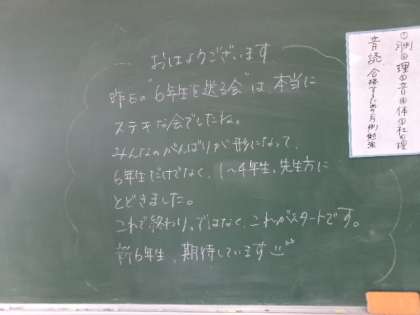 おはようございます
昨日の"6年生を送る会"は本当に
ステキな会でしたね。
みんなのがんばりが形になって、
6年生だけでなく、1〜4年生、先生方に
とどきました。
これで終わり。ではなく、これがスタートです。
新6年生、期待しています
音読